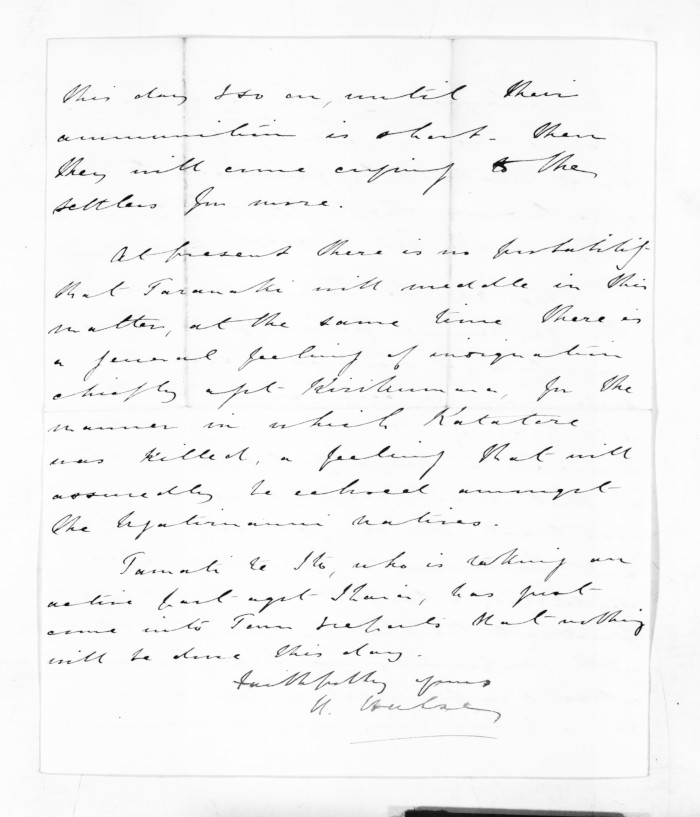 this day & so on, until their
ammunition is short. Then
they will come crying to the
settlers for more.
At present there is no probability
that Taranaki will meddle in this
matter, at the same time there is
a general feeling of indignation
chiefly agst Kirikumara, for the
manner in which Katatore
was killed, a feeling that will
assuredly be echoed amongst
the Ngatiruanui natives.
Tamati te Ito, who is taking an
active part agst Ihaia, has just
come into Town & reports that nothing
will be done this day.
Faithfully yours
H. Halse